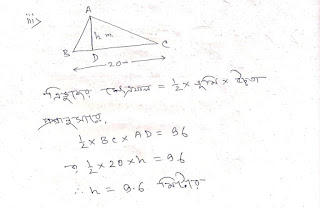 iii>
A
h m
B D C
20
ত্রিভুজের ক্ষেত্রফল = 1/2 × ভূমি × উচ্চতা
প্রশ্নানুসারে,
1/2 × BC × AD = 96
বা 1/2 × 20 × h = 96
∴ h = 9.6 মিটার